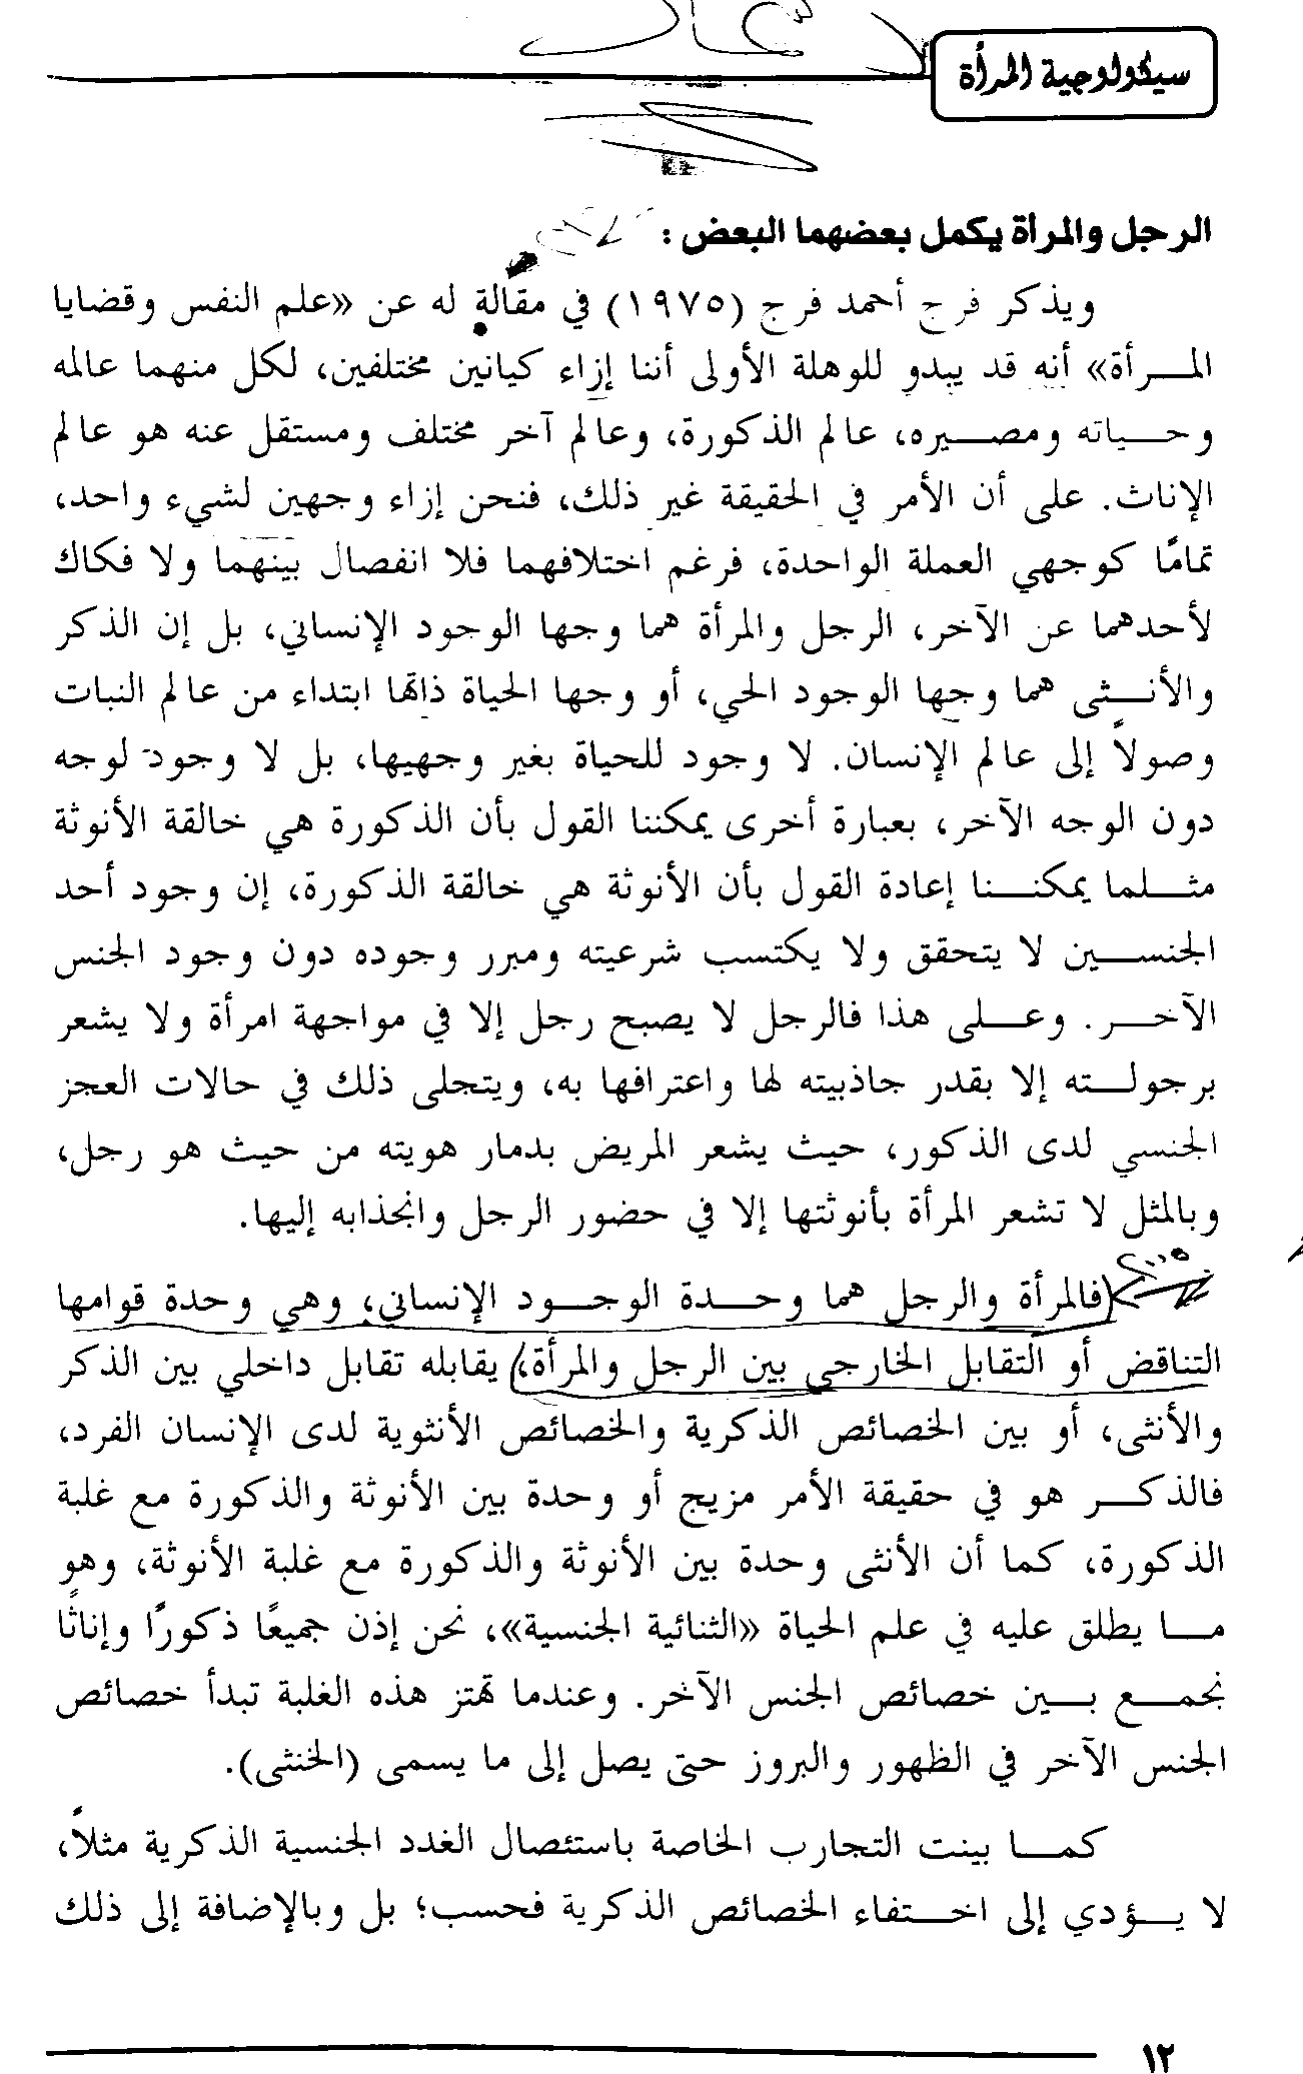 سيكولوجية المرأة
الرجل والمرأة يكمل بعضهما البعض :
ويذكر فرج أحمد فرج (١٩٧٥) في مقالة له عن «علم النفس وقضايا
المرأة» أنه قد يبدو للوهلة الأولى أننا إزاء كيانين مختلفين، لكل منهما عالمه
وحياته ومصيره، عالم الذكورة، وعالم آخر مختلف ومستقل عنه هو عالم
الإناث. على أن الأمر في الحقيقة غير ذلك، فنحن إزاء وجهين لشيء واحد،
تمامًا كوجهي العملة الواحدة، فرغم اختلافهما فلا انفصال بينهما ولا فكاك
لأحدهما عن الآخر، الرجل والمرأة هما وجها الوجود الإنساني، بل إن الذكر
والأنثى هما وجها الوجود الحي، أو وجها الحياة ذاتها ابتداء من عالم النبات
وصولاً إلى عالم الإنسان. لا وجود للحياة بغير وجهيها، بل لا وجود لوجه
دون الوجه الآخر، بعبارة أخرى يمكننا القول بأن الذكورة هي خالقة الأنوثة
مثلما يمكننا إعادة القول بأن الأنوثة هي خالقة الذكورة، إن وجود أحد
الجنسين لا يتحقق ولا يكتسب شرعيته ومبرر وجوده دون وجود الجنس
الآخر. وعلى هذا فالرجل لا يصبح رجل إلا في مواجهة امرأة ولا يشعر
برجولته إلا بقدر جاذبيته لها واعترافها به، ويتجلى ذلك في حالات العجز
الجنسي لدى الذكور، حيث يشعر المريض بدمار هويته من حيث هو رجل،
وبالمثل لا تشعر المرأة بأنوثتها إلا في حضور الرجل وانجذابه إليها.
(فالمرأة والرجل هما وحدة الوجود الإنساني، وهي وحدة قوامها
التناقض أو التقابل الخارجي بين الرجل والمرأة،) يقابله تقابل داخلي بين الذكر
والأنثى، أو بين الخصائص الذكرية والخصائص الأنثوية لدى الإنسان الفرد،
فالذكر هو في حقيقة الأمر مزيج أو وحدة بين الأنوثة والذكورة مع غلبة
الذكورة، كما أن الأنثى وحدة بين الأنوثة والذكورة مع غلبة الأنوثة، وهو
ما يطلق عليه في علم الحياة «الثنائية الجنسية»، نحن إذن جميعًا ذكورًا وإناثًا
نجمع بين خصائص الجنس الآخر. وعندما تهتز هذه الغلبة تبدأ خصائص
الجنس الآخر في الظهور والبروز حتى يصل إلى ما يسمى (الخنثى).
كما بينت التجارب الخاصة باستئصال الغدد الجنسية الذكرية مثلاً،
لا يؤدي إلى اختفاء الخصائص الذكرية فحسب؛ بل وبالإضافة إلى ذلك
١٢